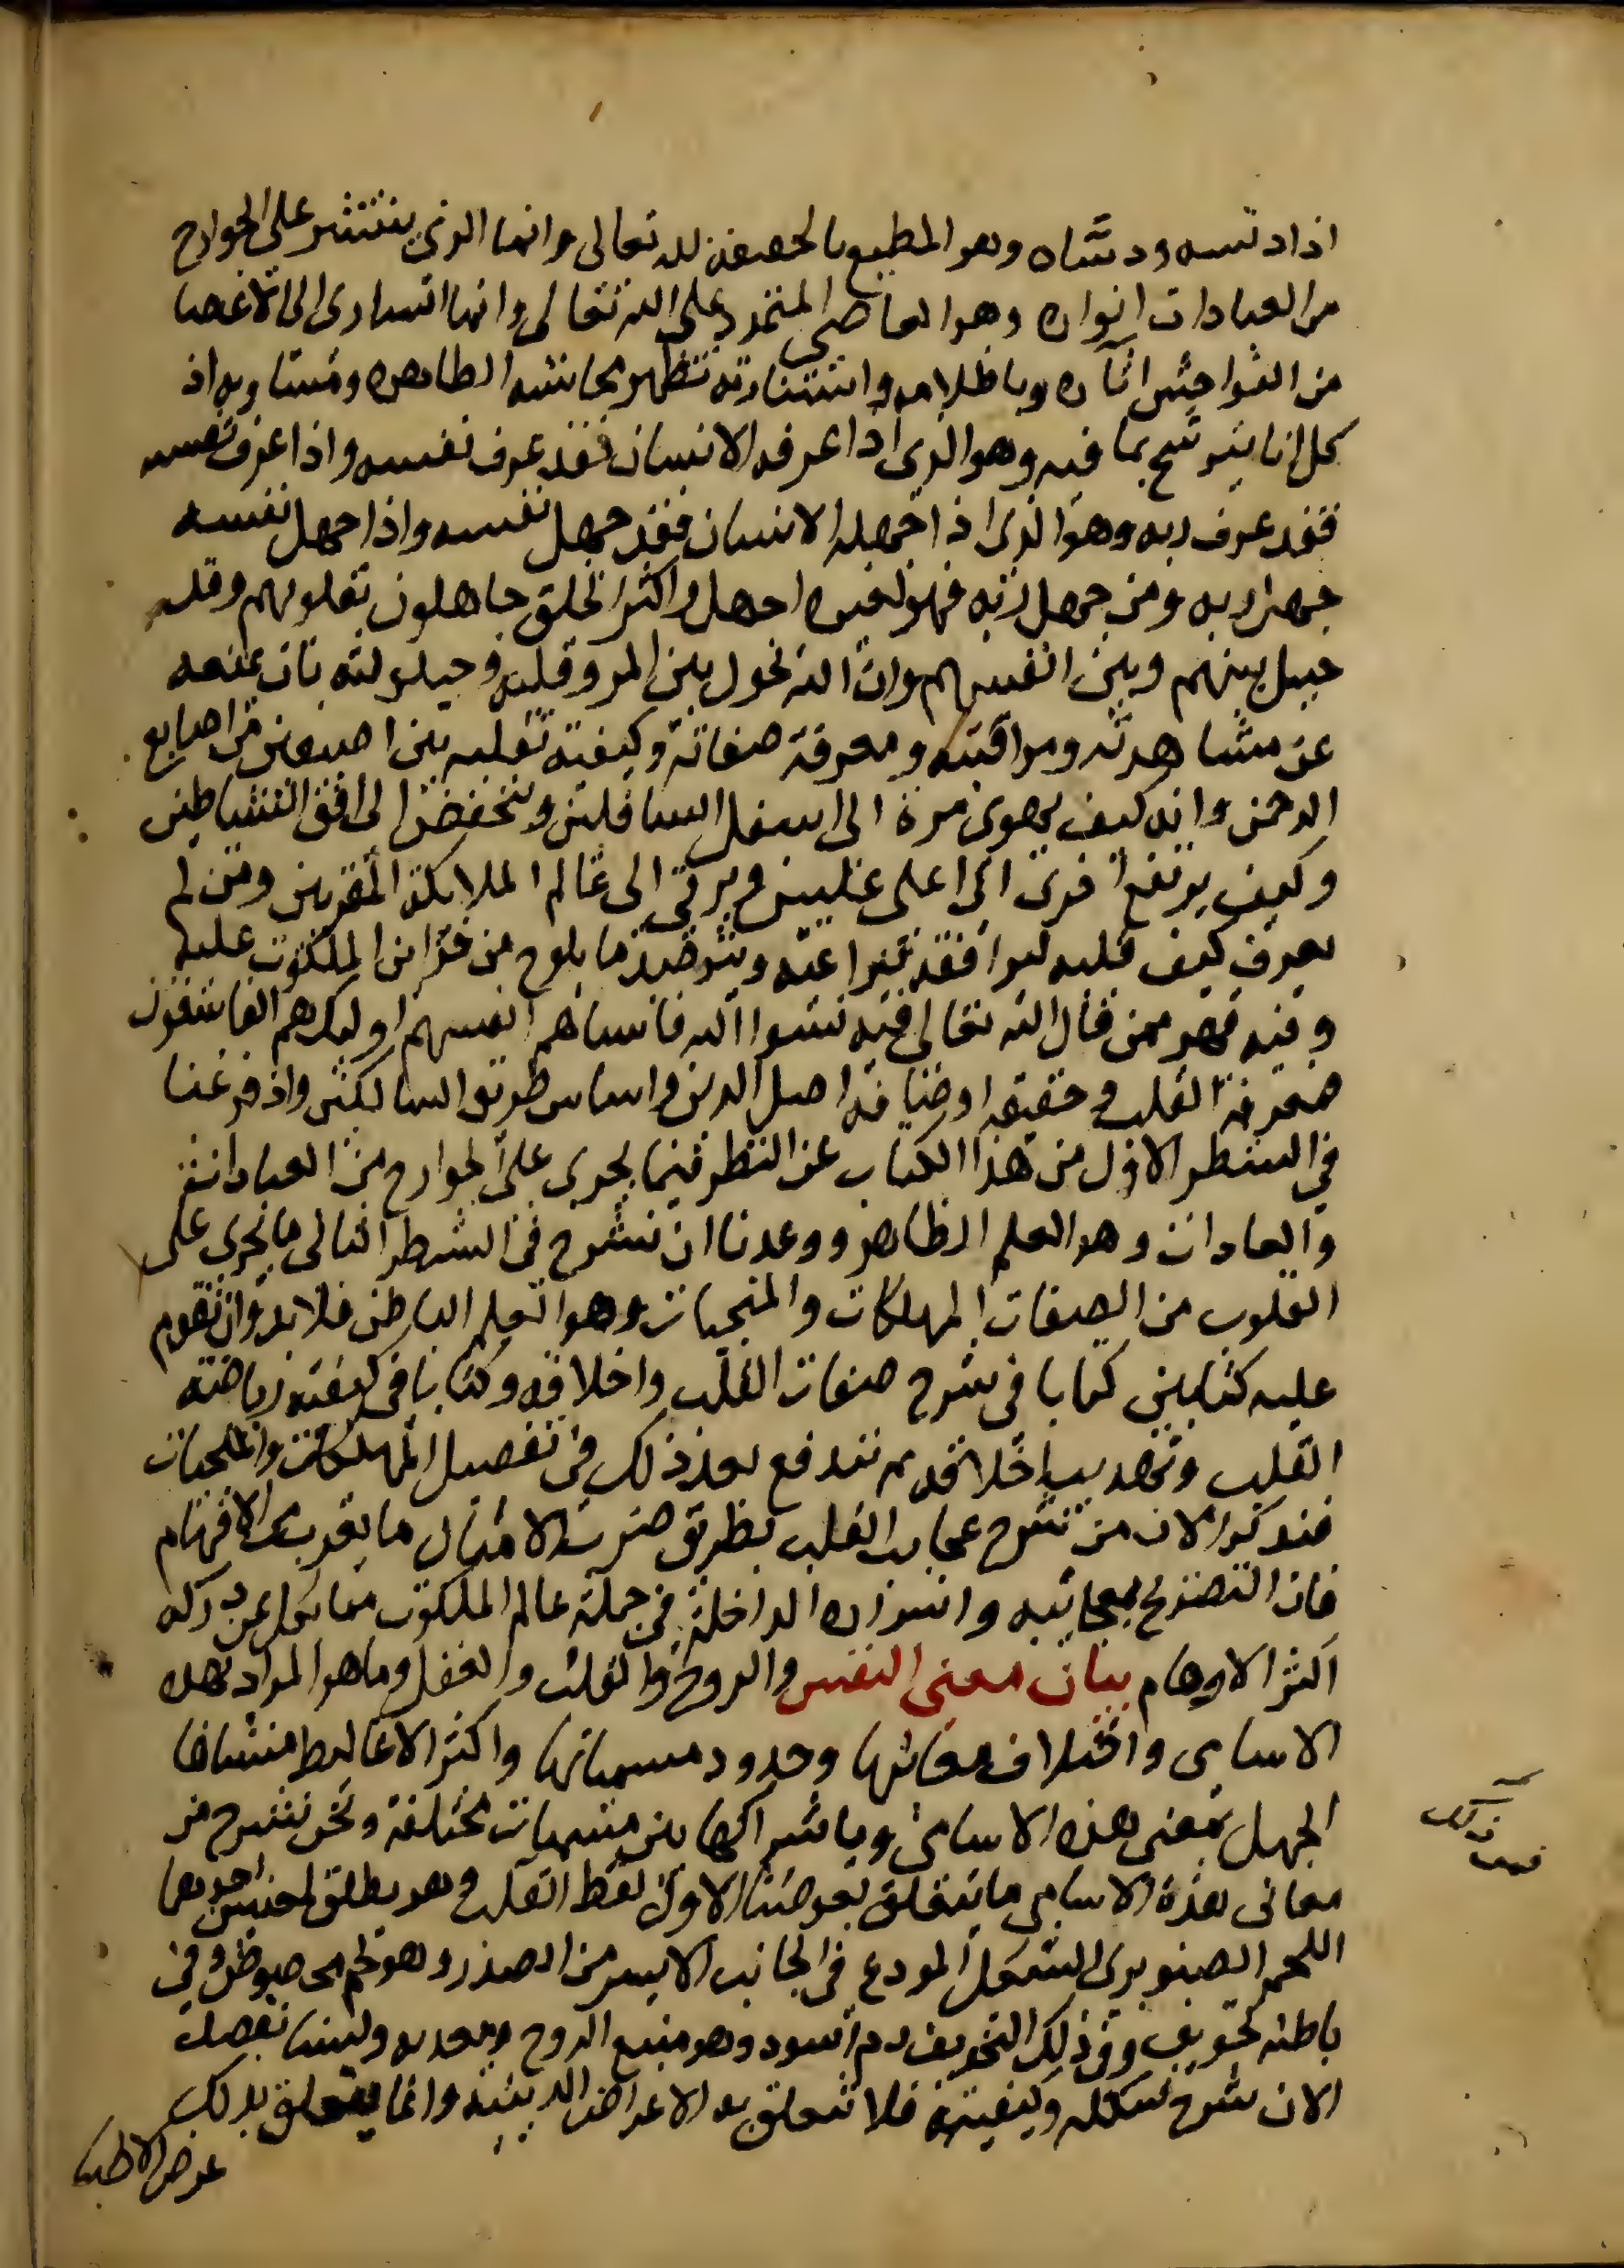 اذا دنسه ودساه وهو المطيع بالحقيقة لله تعالى وانما الذي ينتشر على الجوارح
من العبادات انواره وهو العاصي المتمرد على الله تعالى وانما الساري الى الاعضا
من الفواحش اثاره وباظلامه واستنارته تظهر محاسنه الظاهره ومساويه اذ
كل انا يترشح بما فيه وهو الذي اذا عرفه الانسان فقد عرف نفسه واذا عرف نفسه
فقد عرف ربه وهو الذي اذا جهله الانسان فقد جهل نفسه واذا جهل نفسه
جهل ربه ومن جهل ربه فهو لغيره اجهل واكثر الخلق جاهلون بقلوبهم وقد
حيل بينهم وبين انفسهم وان الله يحول بين المر وقلبه وحيلولته بان يمنعه
عن مشاهدته ومراقبته ومعرفة صفاته وكيفية تقلبه بين اصبعين من اصابع
الرحمن وانه كيف يهوى مرة الى اسفل السافلين وينخفض الى افق الشياطين
وكيف يرتفع اخرى الى اعلى عليين ويرتقى الى عالم الملايكة المقربين ومن لم
يعرف كيف قلبه ليراقبه ويراعيه ويترصد ما يلوح من خزاين الملكوت عليه
وفيه فهو ممن قال الله تعالى فيه نسوا الله فانساهم انفسهم اوليك هم الفاسقون
فمعرفة القلب وحقيقة اوصافه اصل الدين واساس طريق السالكين واذ فرغنا
في الشطر الاول من هذا الكتاب عن النظر فيما يجرى على الجوارح من العبادات
والعادات وهو العلم الظاهر ووعدنا ان نشرح في الشطر الثاني ما يجرى على
القلوب من الصفات المهلكات والمنجيات وهو العلم الباطن فلا بد وان نقدم
عليه كتابين كتابا في شرح صفات القلب واخلاقه وكتابا في كيفية رياضة
القلب وتهذيب اخلاقه ثم نندفع بعد ذلك في تفصيل المهلكات والمنجيات
فنذكر الان من شرح عجايب القلب بطريق ضرب الامثال ما يقرب من الافهام
فان التصريح بعجائبه واسراره الداخلة في جملة عالم الملكوت مما يكل عن دركه
اكثر الاوهام بيان معنى النفس والروح والقلب والعقل وما هو المراد بهذه
الاسامى واختلاف معانيها وحدود مسمياتها واكثر الاغاليط منشاها
الجهل بمعنى هذه الاسامى وباشتراكها بين مسميات مختلفة ونحن نشرح من
معاني هذه الاسامى ما يتعلق بغرضنا الاول لفظ القلب وهو يطلق لمعنيين احدهما
اللحم الصنوبري الشكل المودع في الجانب الايسر من الصدر وهو لحم مخصوص وفي
باطنه تجويف وفي ذلك التجويف دم اسود وهو منبع الروح ومعدنه ولسنا نقصد
الان شرح شكله وكيفيته فلا تتعلق به الاغراض الدينيه وانما يتعلق بذلك
غرض الاطبا